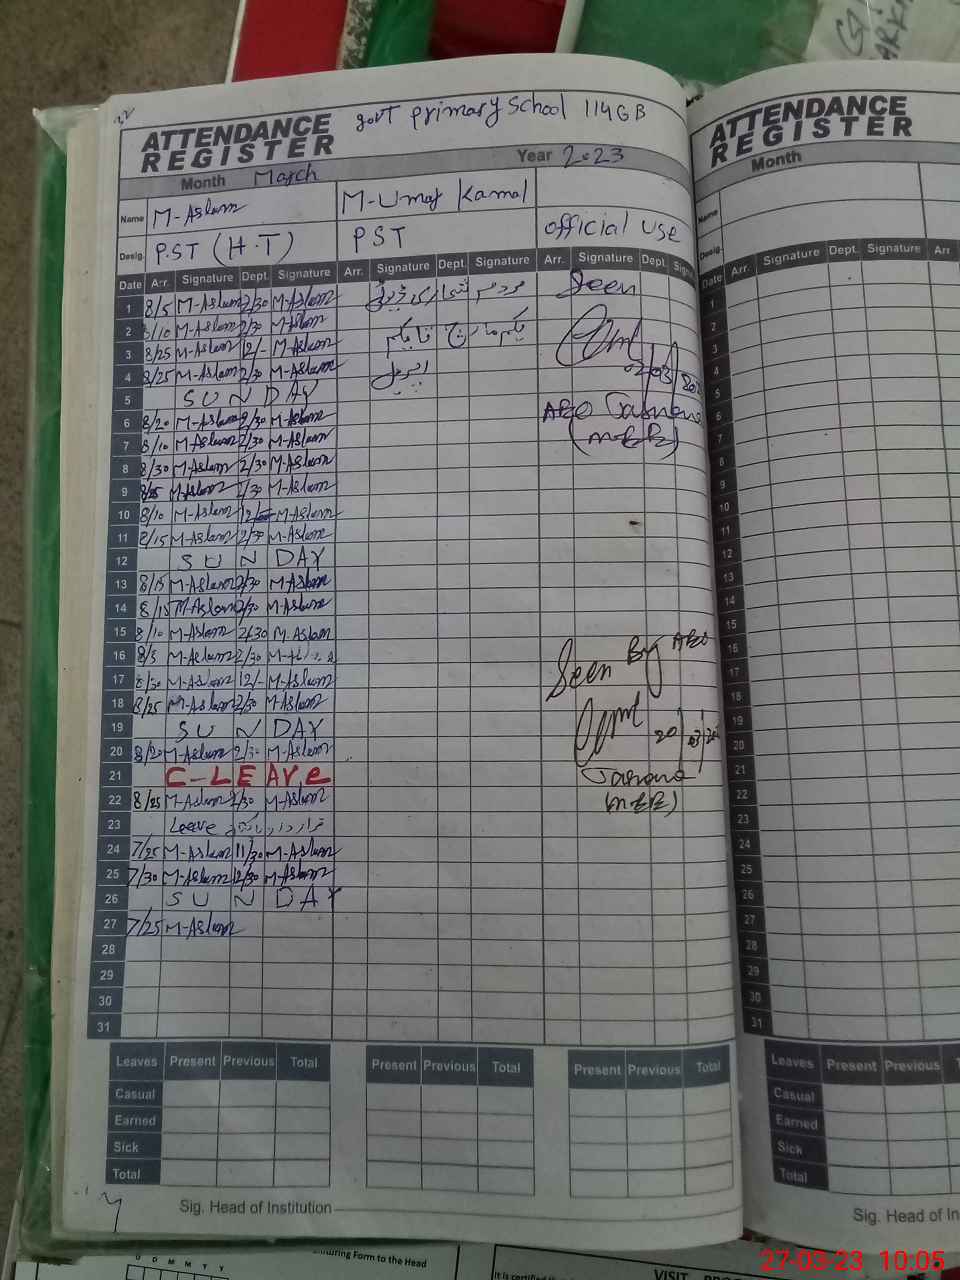 govt primary School 114GB
ATTENDANCE
REGISTER
Month March Year 2023
Name M-Aslam M-Umar Kamal
Desig. P.ST (H.T) PST official use
Date Arr. Signature Dept. Signature Arr. Signature Dept. Signature Arr. Signature Dept.
1 8/5 M-Aslam 2/30 M-Aslam Seen
2 8/10 M-Aslam 2/30 M-Aslam یکم مارچ تا یکم
3 8/25 M-Aslam 12/- M-Aslam
4 8/25 M-Aslam 2/30 M-Aslam اپریل
5 SUNDAY
6 8/20 M-Aslam 2/30 M-Aslam AEO
7 8/10 M-Aslam 2/30 M-Aslam
8 8/30 M-Aslam 2/30 M-Aslam
9 M-Aslam 2/30 M-Aslam
10 8/10 M-Aslam 12/ M-Aslam
11 8/15 M-Aslam 2/30 M-Aslam
12 SUNDAY
13 8/15 M-Aslam 2/30 M-Aslam
14 8/15 M-Aslam 2/30 M-Aslam
15 8/10 M-Aslam 2/30 M-Aslam
16 8/5 M-Aslam 2/30 Seen By AEO
17 8/30 M-Aslam 12/- M-Aslam
18 8/25 M-Aslam 2/30 M-Aslam
19 SUNDAY
20 8/20 M-Aslam 2/30 M-Aslam
21 C-LEAVe
22 8/25 M-Aslam 2/30 M-Aslam
23 Leave
24 7/25 M-Aslam 11/30 M-Aslam
25 7/30 M-Aslam 12/30 M-Aslam
26 SUNDAY
27 7/25 M-Aslam
28
29
30
31
Leaves Present Previous Total Present Previous Total Present Previous Total
Casual
Earned
Sick
Total
Sig. Head of Institution
ATTENDANCE
REGISTER
Month
Name
Desig.
Date Arr. Signature Dept. Signature Arr
1
2
3
4
5
6
7
8
9
10
11
12
13
14
15
16
17
18
19
20
21
22
23
24
25
26
27
28
29
30
31
Leaves Present Previous
Casual
Earned
Sick
Total
Sig. Head of
Form to the Head
D D M M Y Y
It is certified
VISIT
27-03-23 10:05